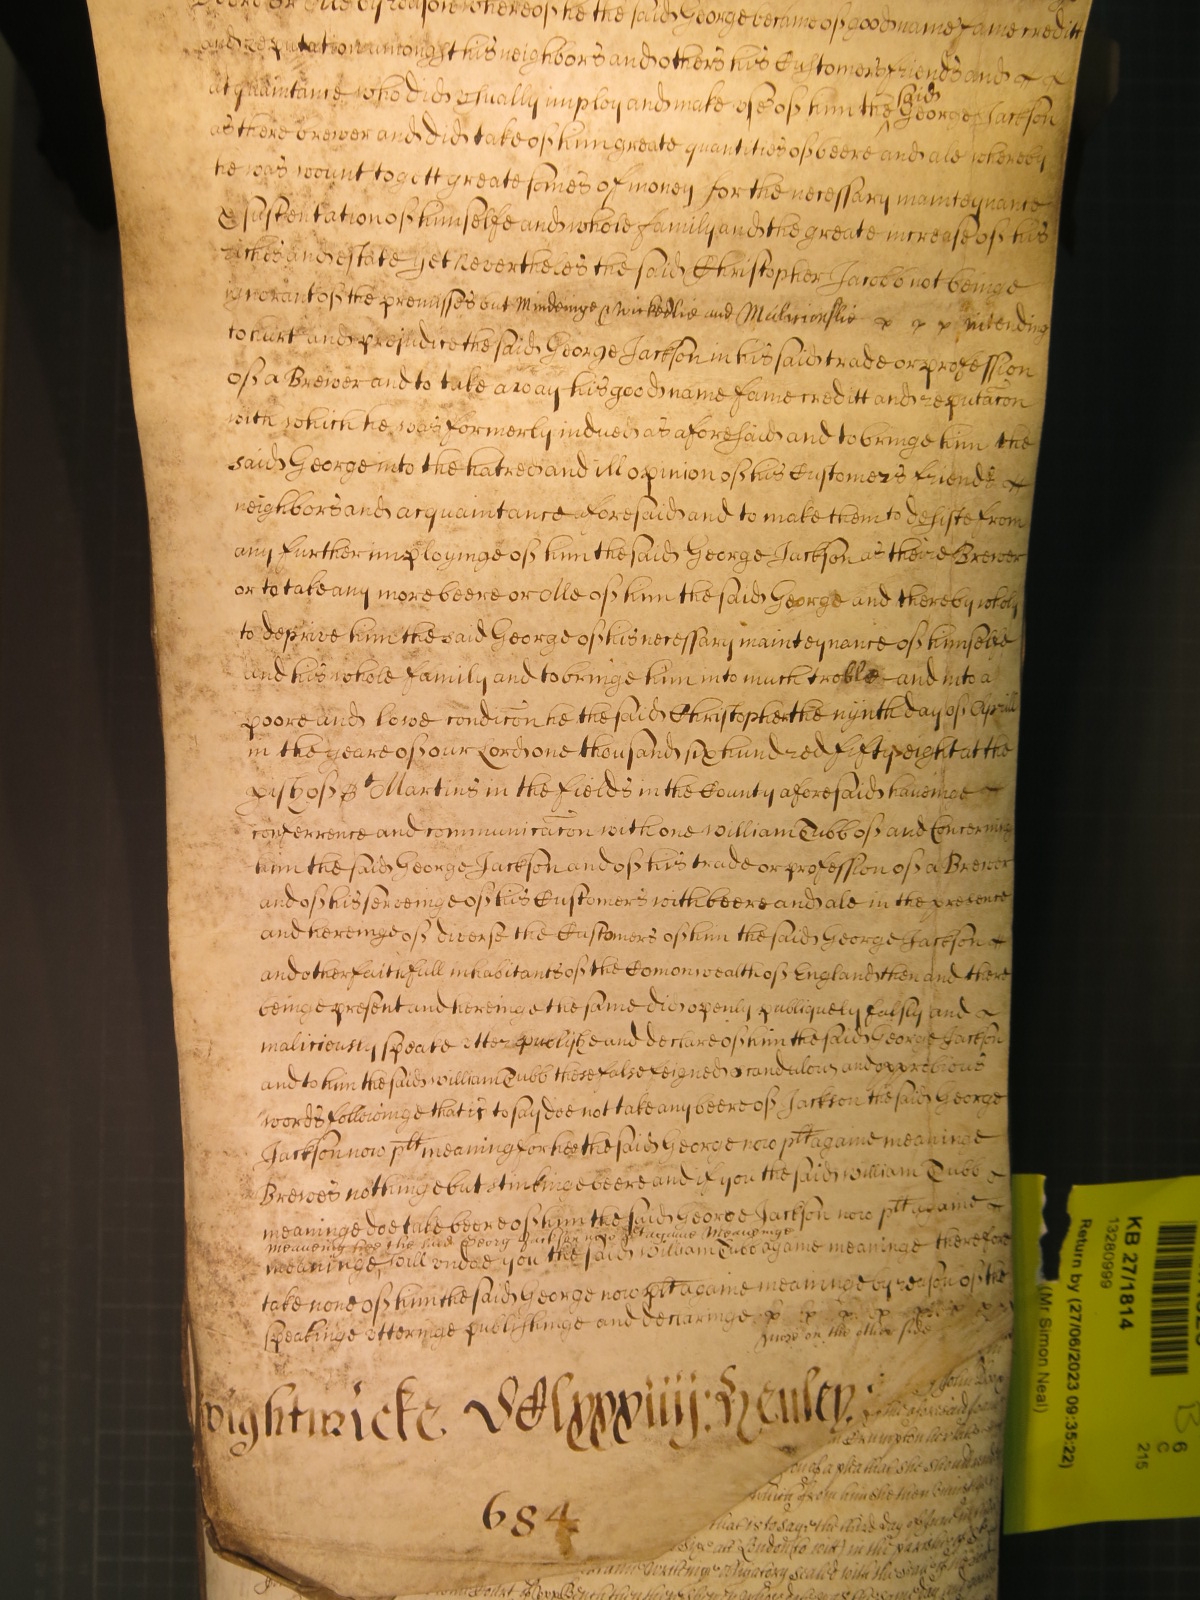 by reason whereof he the said George became of good name fame creditt
and reputation amongst his neighbors and others his Customers friends and
acquaintance who did usually imploy and make use of him the said George Jackson
as there brewer and did take of him greate quantities of beere and ale whereby
he was wount to gett greate somes of money for the necessary mainteynance
& sustentation of himselfe and whole family and the greate increase of his
riches and estate Yet Nevertheles the said Christopher Jacob not beinge
ignorant of the premisses but Mindeinge & Wickedlie and Malicionslie intending
to hurt and prejudice the said George Jackson in his said trade or profession
of a Brewer and to take away his good name fame creditt and reputacon
with which he was formerly indued as aforesaid and to bringe him the
said George into the hatred and ill opinion of his Customers friends
neighbors and acquaintance aforesaid and to make them to desiste from
any further imployinge of him the said George Jackson as theire Brewer
or to take any more beere or Alle of him the said George and thereby wholy
to deprive him the said George of his necessary mainteynance of himselfe
and his whole family and to bringe him into much troble and into a
poore and lowe condicon he the said Christopher the nynth day of Aprill
in the yeare of our Lord one thousand six hundred fifty eight at the
pish of St Martins in the Fields in the County aforesaid haveinge
conferrence and communicacon with one William Tubb of and Concerning
him the said George Jackson and of his trade or profession of a Brewer
and of his serveinge of his Customers with beere and ale in the presence
and hereinge of diverse the Customers of him the said George Jackson
and other faithfull inhabitants of the Comonwealth of England then and there
beinge present and hereinge the same did openly publiquely falsly and
maliciously speake utter publishe and declare of him the said George Jackson
and to him the said William Tubb these false feigned scandalous and opprobious
words followinge that is to say doe not take any beere of Jackson the said George
Jackson now plt meaning for hee the said George now plt agame meaninge
Brewes nothinge but stinkinge beere and if you the said William Tubb
meaninge doe take beere of him the said George Jackson now plt agame
meaneing hee the said Georg Jackson now plt agame Meaneinge
meaninge will undoe you the said William Tubb agame meaninge therefore
take none of him the said George now plt agame meaninge by reason of the
speakinge utteringe publishinge and declaringe
more on the other side
Wightwicke DClxxxiiij: Henley:
684
KB 27/1814
13280999
Return by (27/06/2023 09:35:22)
(Mr Simon Neal)
6
C
215